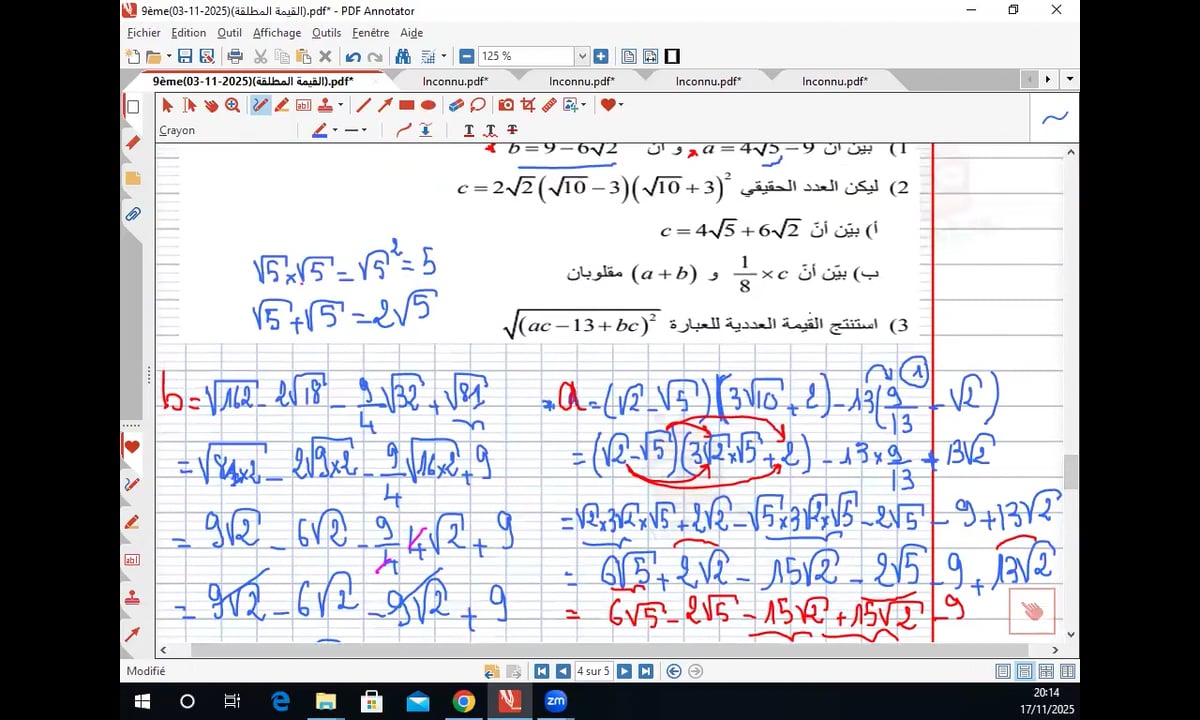 9ème(03-11-2025)(القيمة المطلقة).pdf* - PDF Annotator
Fichier Edition Outil Affichage Outils Fenêtre Aide
125 %
9ème(03-11-2025)(القيمة المطلقة).pdf* Inconnu.pdf* Inconnu.pdf* Inconnu.pdf* Inconnu.pdf*
Crayon T T T
1) بيّن أن a = 4√5 − 9 و أن b = 9 − 6√2
2) ليكن العدد الحقيقي c = 2√2(√10 − 3)(√10 + 3)²
أ) بيّن أنّ c = 4√5 + 6√2
ب) بيّن أنّ 1/8 × c و (a + b) مقلوبان
3) استنتج القيمة العددية للعبارة √(ac − 13 + bc)²
√5 × √5 = √5² = 5
√5 + √5 = 2√5
b = √162 − 2√18 − 9/4 √32 + √81
= √81×2 − 2√9×2 − 9/4 √16×2 + 9
= 9√2 − 6√2 − 9/4 4√2 + 9
= 9√2 − 6√2 − 9√2 + 9
a = (√2 − √5)(3√10 + 2) − 13(9/13 − √2) 1
= (√2 − √5)(3√2×√5 + 2) − 13×9/13 + 13√2
= √2×3√2×√5 + 2√2 − √5×3√2×√5 − 2√5 − 9 + 13√2
= 6√5 + 2√2 − 15√2 − 2√5 − 9 + 13√2
= 6√5 − 2√5 − 15√2 + 15√2 − 9
Modifié 4 sur 5
zm
20:14
17/11/2025